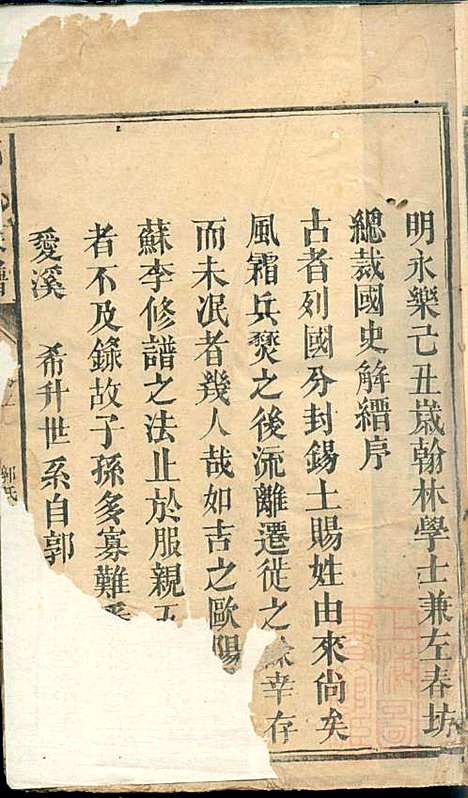 明永樂己丑嵗翰林學士兼左春坊
總裁國史解縉序
古者列國分封錫土賜姓由來尚矣
風霜兵燹之後流離遷徙之餘幸存
而未泯者幾人哉如古之歐陽
蘇李修譜之法止於服親五
者不及錄故子孫多寡難
愛溪　希升世系自郭
郭氏